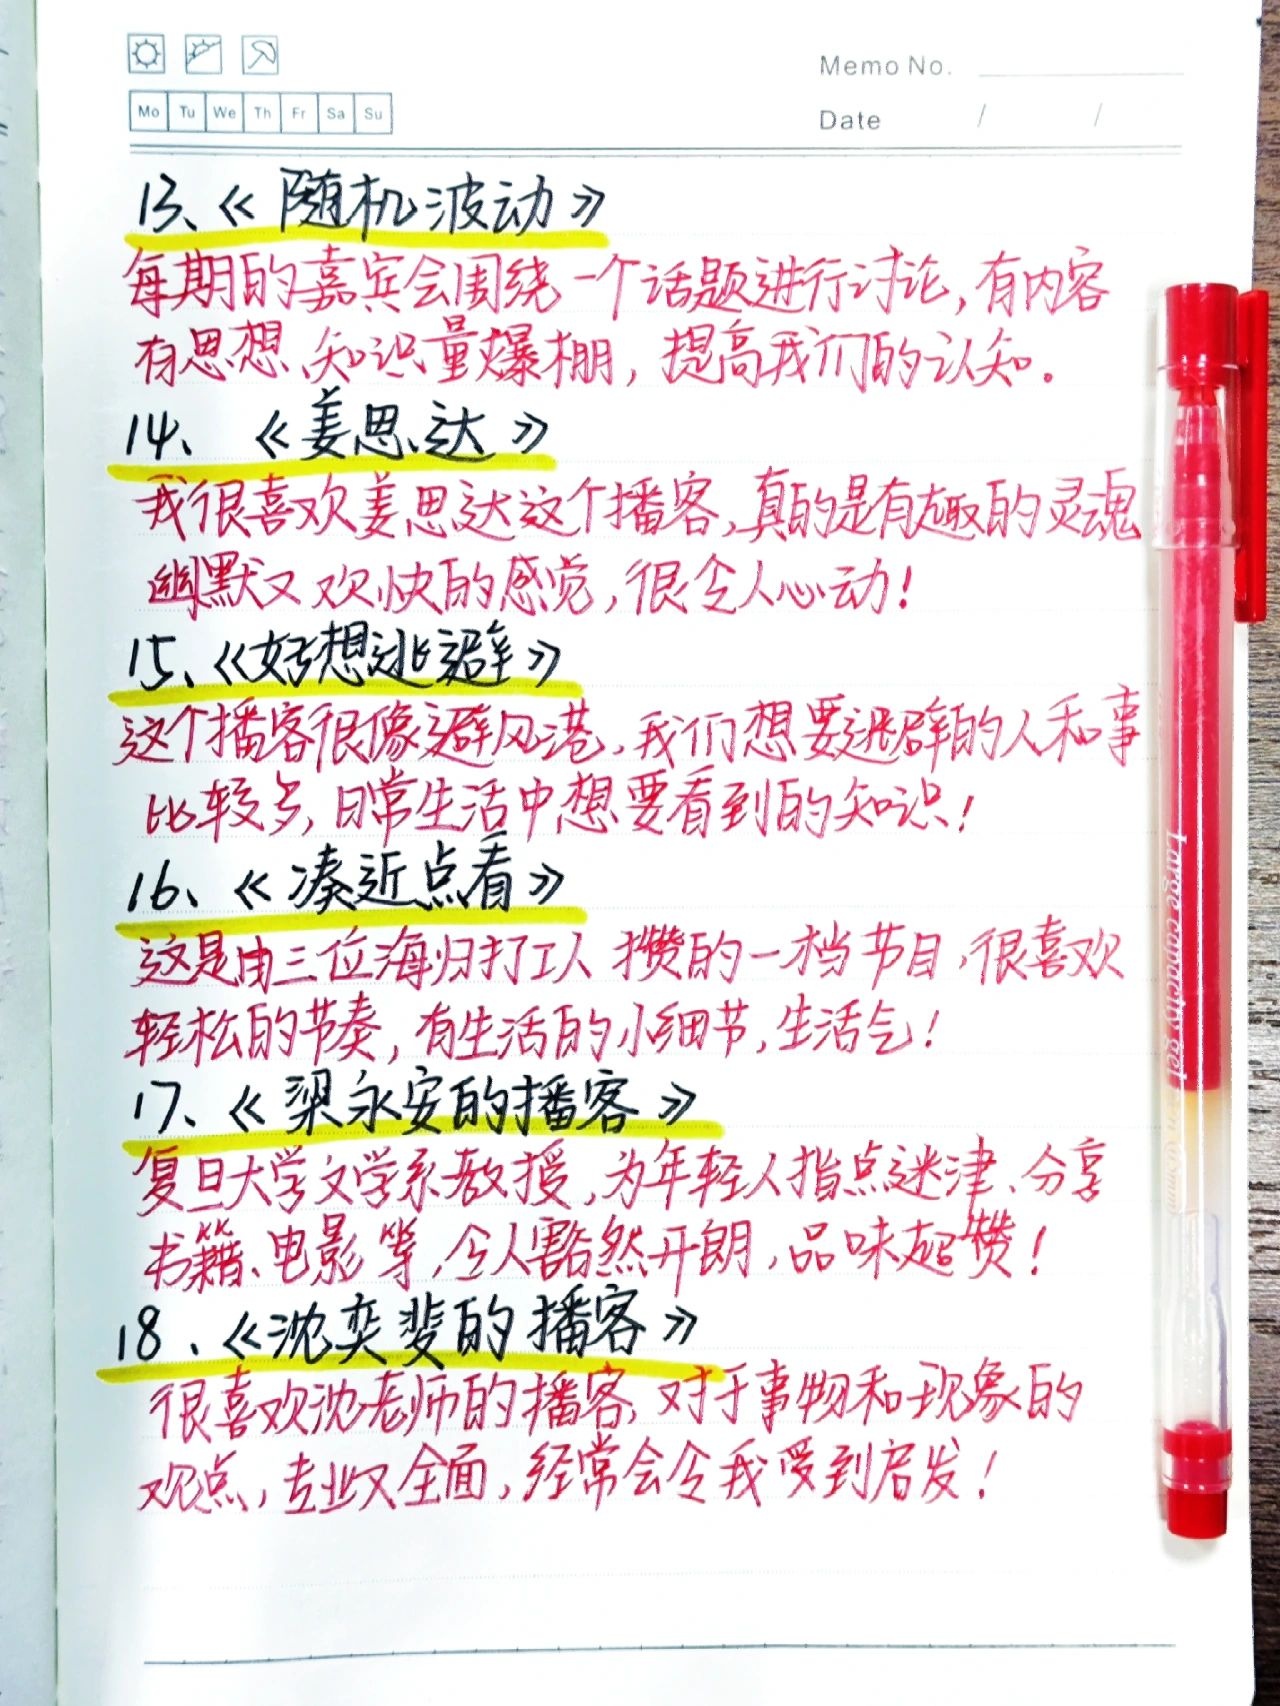 Memo No.
Mo Tu We Th Fr Sa Su
Date / /
13、《随机波动》
每期的嘉宾会围绕一个话题进行讨论,有内容
有思想、知识量爆棚,提高我们的认知。
14、《姜思达》
我很喜欢姜思达这个播客,真的是有趣的灵魂
幽默又欢快的感觉,很令人心动!
15、《好想逃避》
这个播客很像避风港,我们想要逃避的人和事
比较多,日常生活中想要看到的知识!
16、《凑近点看》
这是由三位海归打工人攒的一档节目,很喜欢
轻松的节奏,有生活的小细节,生活气!
17、《梁永安的播客》
复旦大学文学系教授,为年轻人指点迷津、分享
书籍、电影等,令人豁然开朗,品味超赞!
18、《沈奕斐的播客》
很喜欢沈老师的播客,对于事物和现象的
观点,专业又全面,经常会令我受到启发!
Large capacity gel